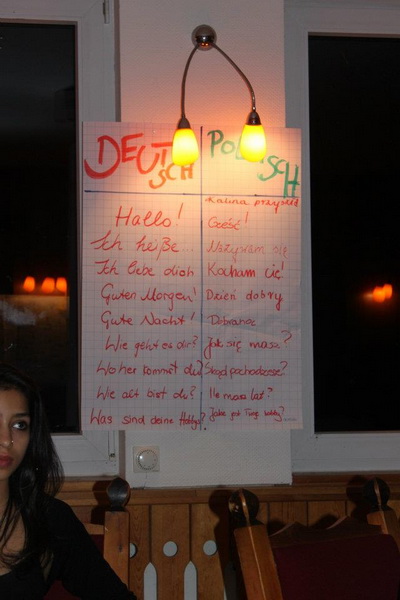 DEUTSCH POLNISCH
Hallo! Cześć!
Ich heiße... Nazywam się
Ich liebe dich Kocham cię!
Guten Morgen! Dzień dobry
Gute Nacht! Dobranoc
Wie geht es dir? Jak się masz?
Woher kommst du? Skąd pochodzisz?
Wie alt bist du? Ile masz lat?
Was sind deine Hobbys? Jakie jest Twoje hobby?